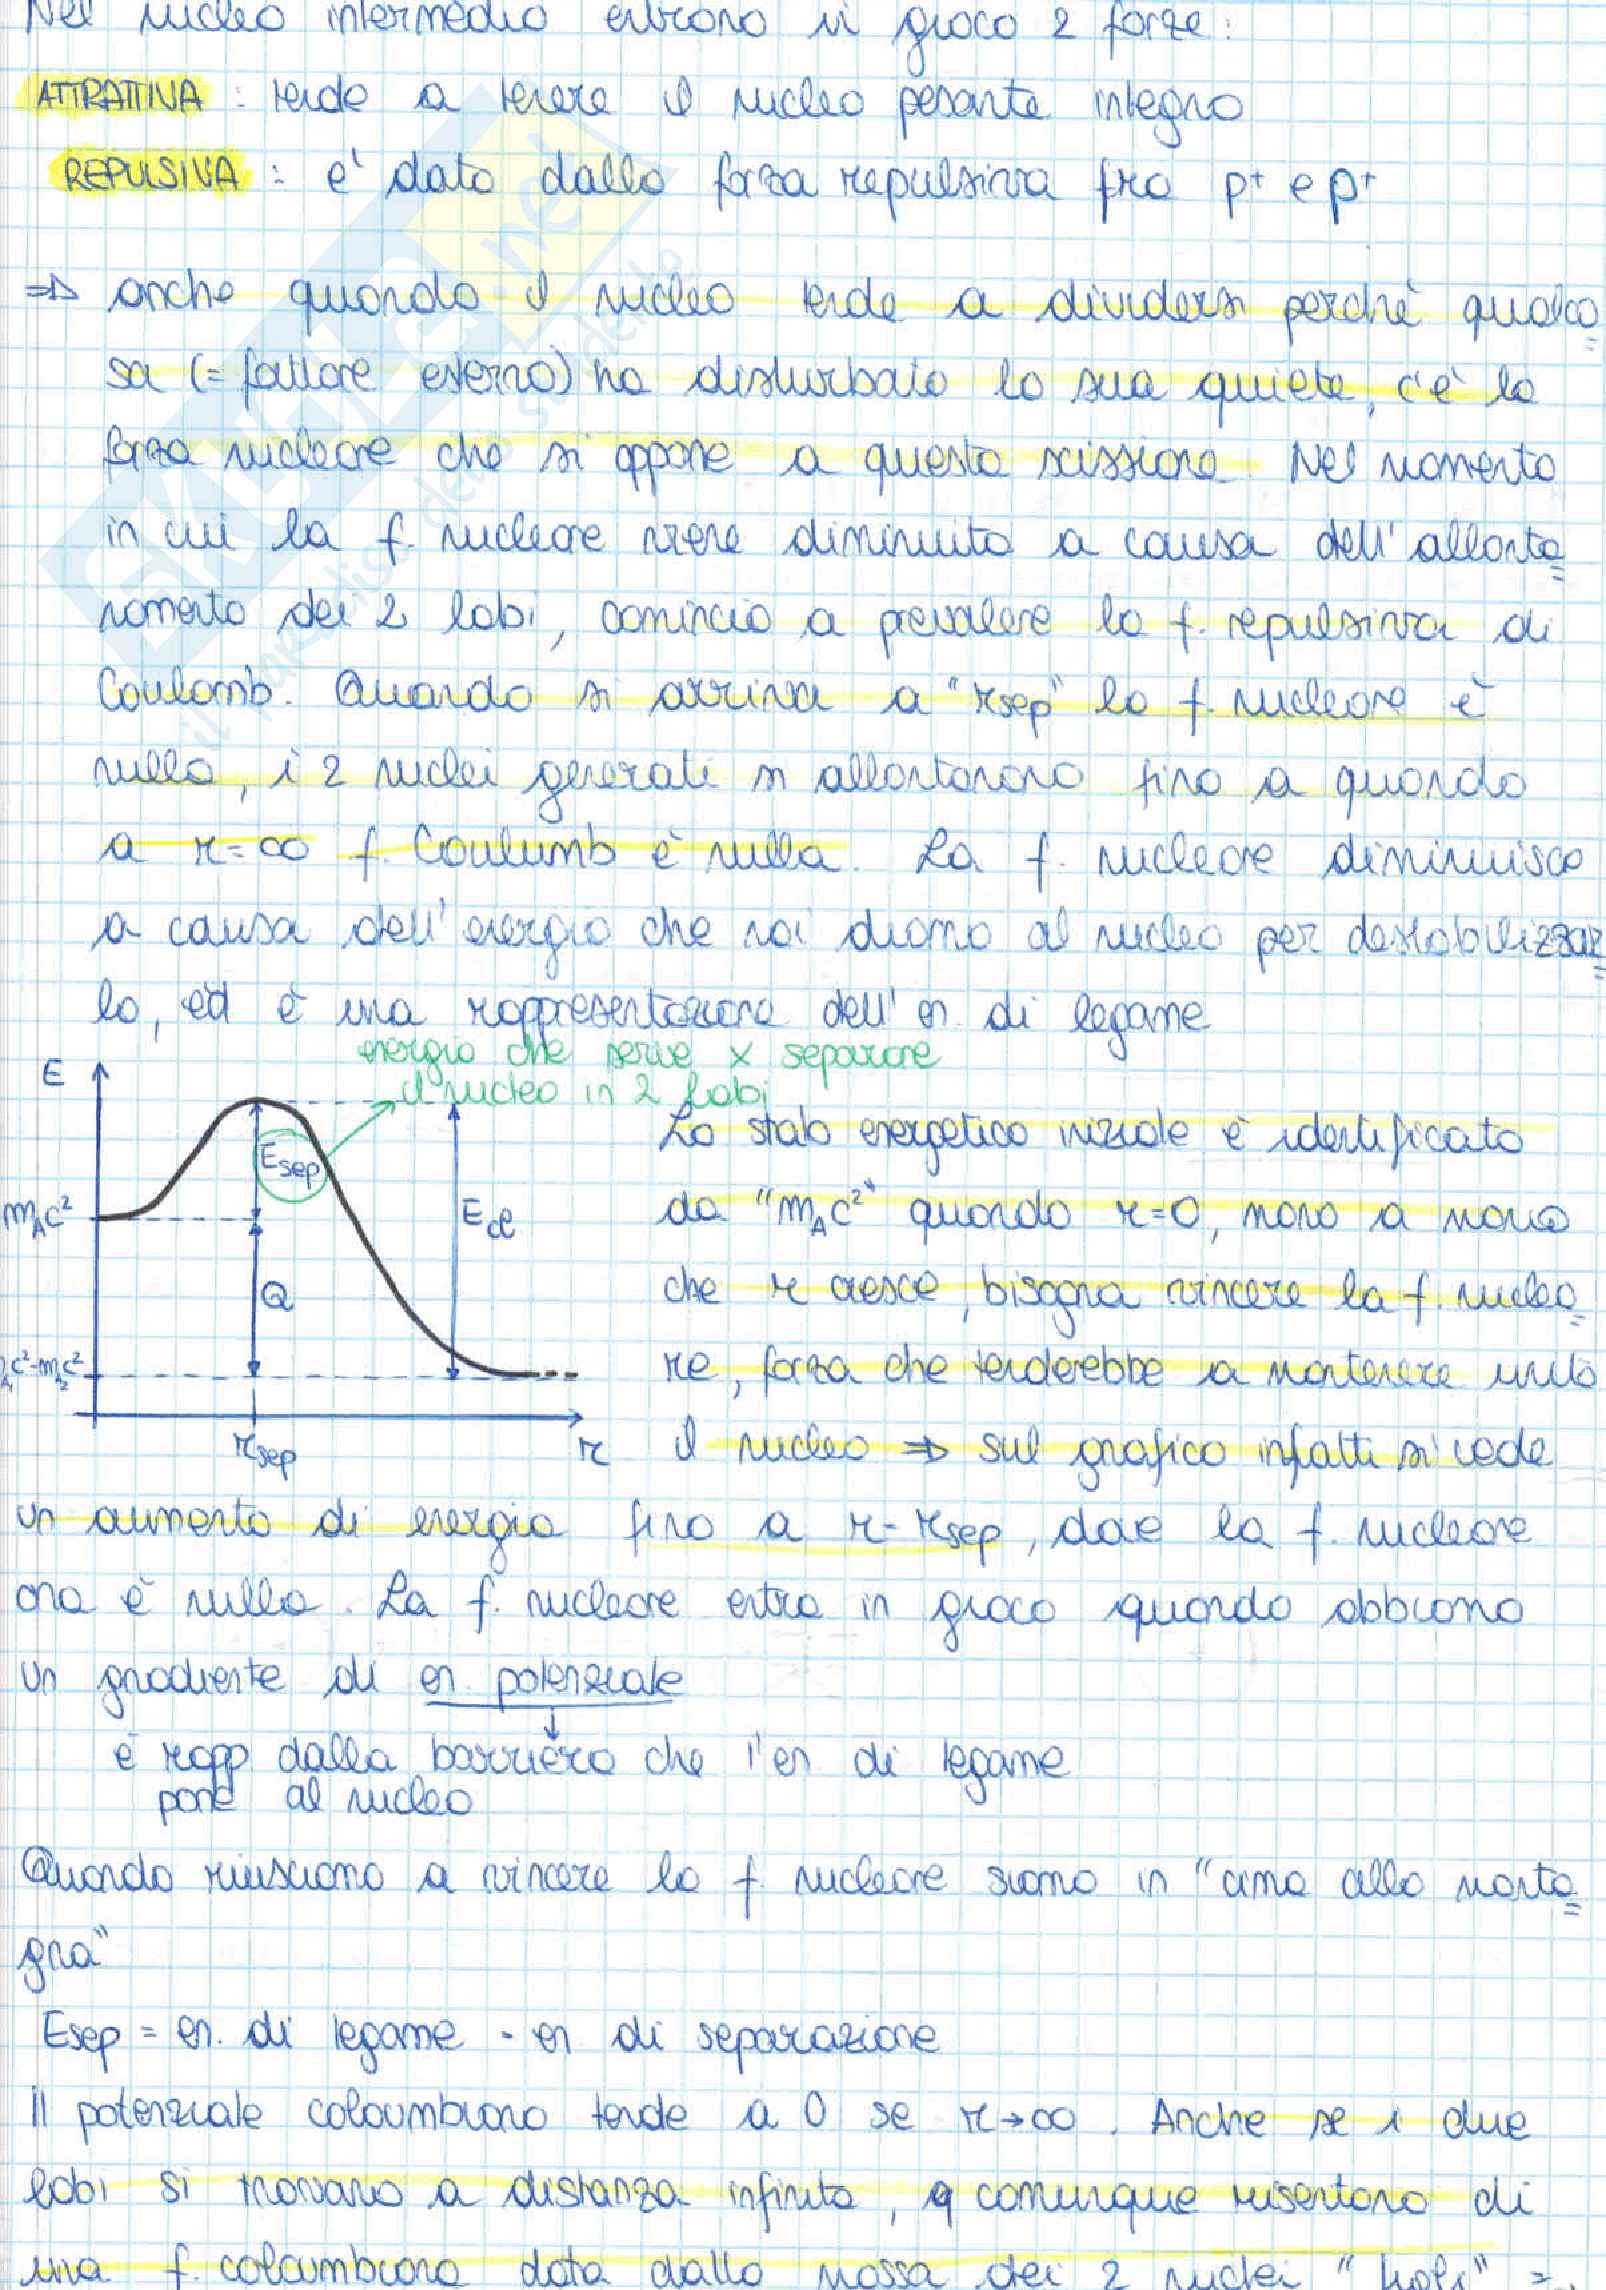 Nel nucleo intermedio entrano in gioco 2 forze:
ATTRATTIVA : tende a tenere il nucleo pesante integro
REPULSIVA : e' dato dalla forza repulsiva fra p+ e p+
⇒ anche quando il nucleo tende a dividersi perché qualco
sa (= fattore esterno) ha disturbato la sua quiete, c'è la
forza nucleare che si oppone a questa scissione. Nel momento
in cui la f. nucleare viene diminuita a causa dell'allonta
namento dei 2 lobi, comincia a prevalere la f. repulsiva di
Coulomb. Quando si arriva a "rsep" la f. nucleare è
nulla, i 2 nuclei generati si allontanano fino a quando
a r=∞ f. Coulumb è nulla. La f. nucleare diminuisce
a causa dell'energia che noi diamo al nucleo per destabilizzar
lo, ed è una rappresentazione dell'en. di legame
energia che serve x separare
il nucleo in 2 lobi
E
Esep
mAc²
Ecl
Q
c²-mA2c²
rsep
r
Lo stato energetico iniziale è identificato
da "mAc²" quando r=0, mano a mano
che r cresce, bisogna vincere la f. nuclea
re, forza che tenderebbe a mantenere unito
il nucleo ⇒ sul grafico infatti si vede
un aumento di energia fino a r=rsep, dove la f. nucleare
ora è nulla. La f. nucleare entra in gioco quando abbiamo
un gradiente di en. potenziale
è rapp. dalla barriera che l'en di legame
pone al nucleo
Quando riusciamo a vincere la f. nucleare siamo in "cima alla monta
gna"
Esep = en. di legame - en di separazione
Il potenziale coloumbiano tende a 0 se r→∞. Anche se i due
lobi si trovano a distanza infinita, comunque risentono di
una f. coloumbiana data dalla massa dei 2 nuclei
skuola.net
il paradiso dello studente